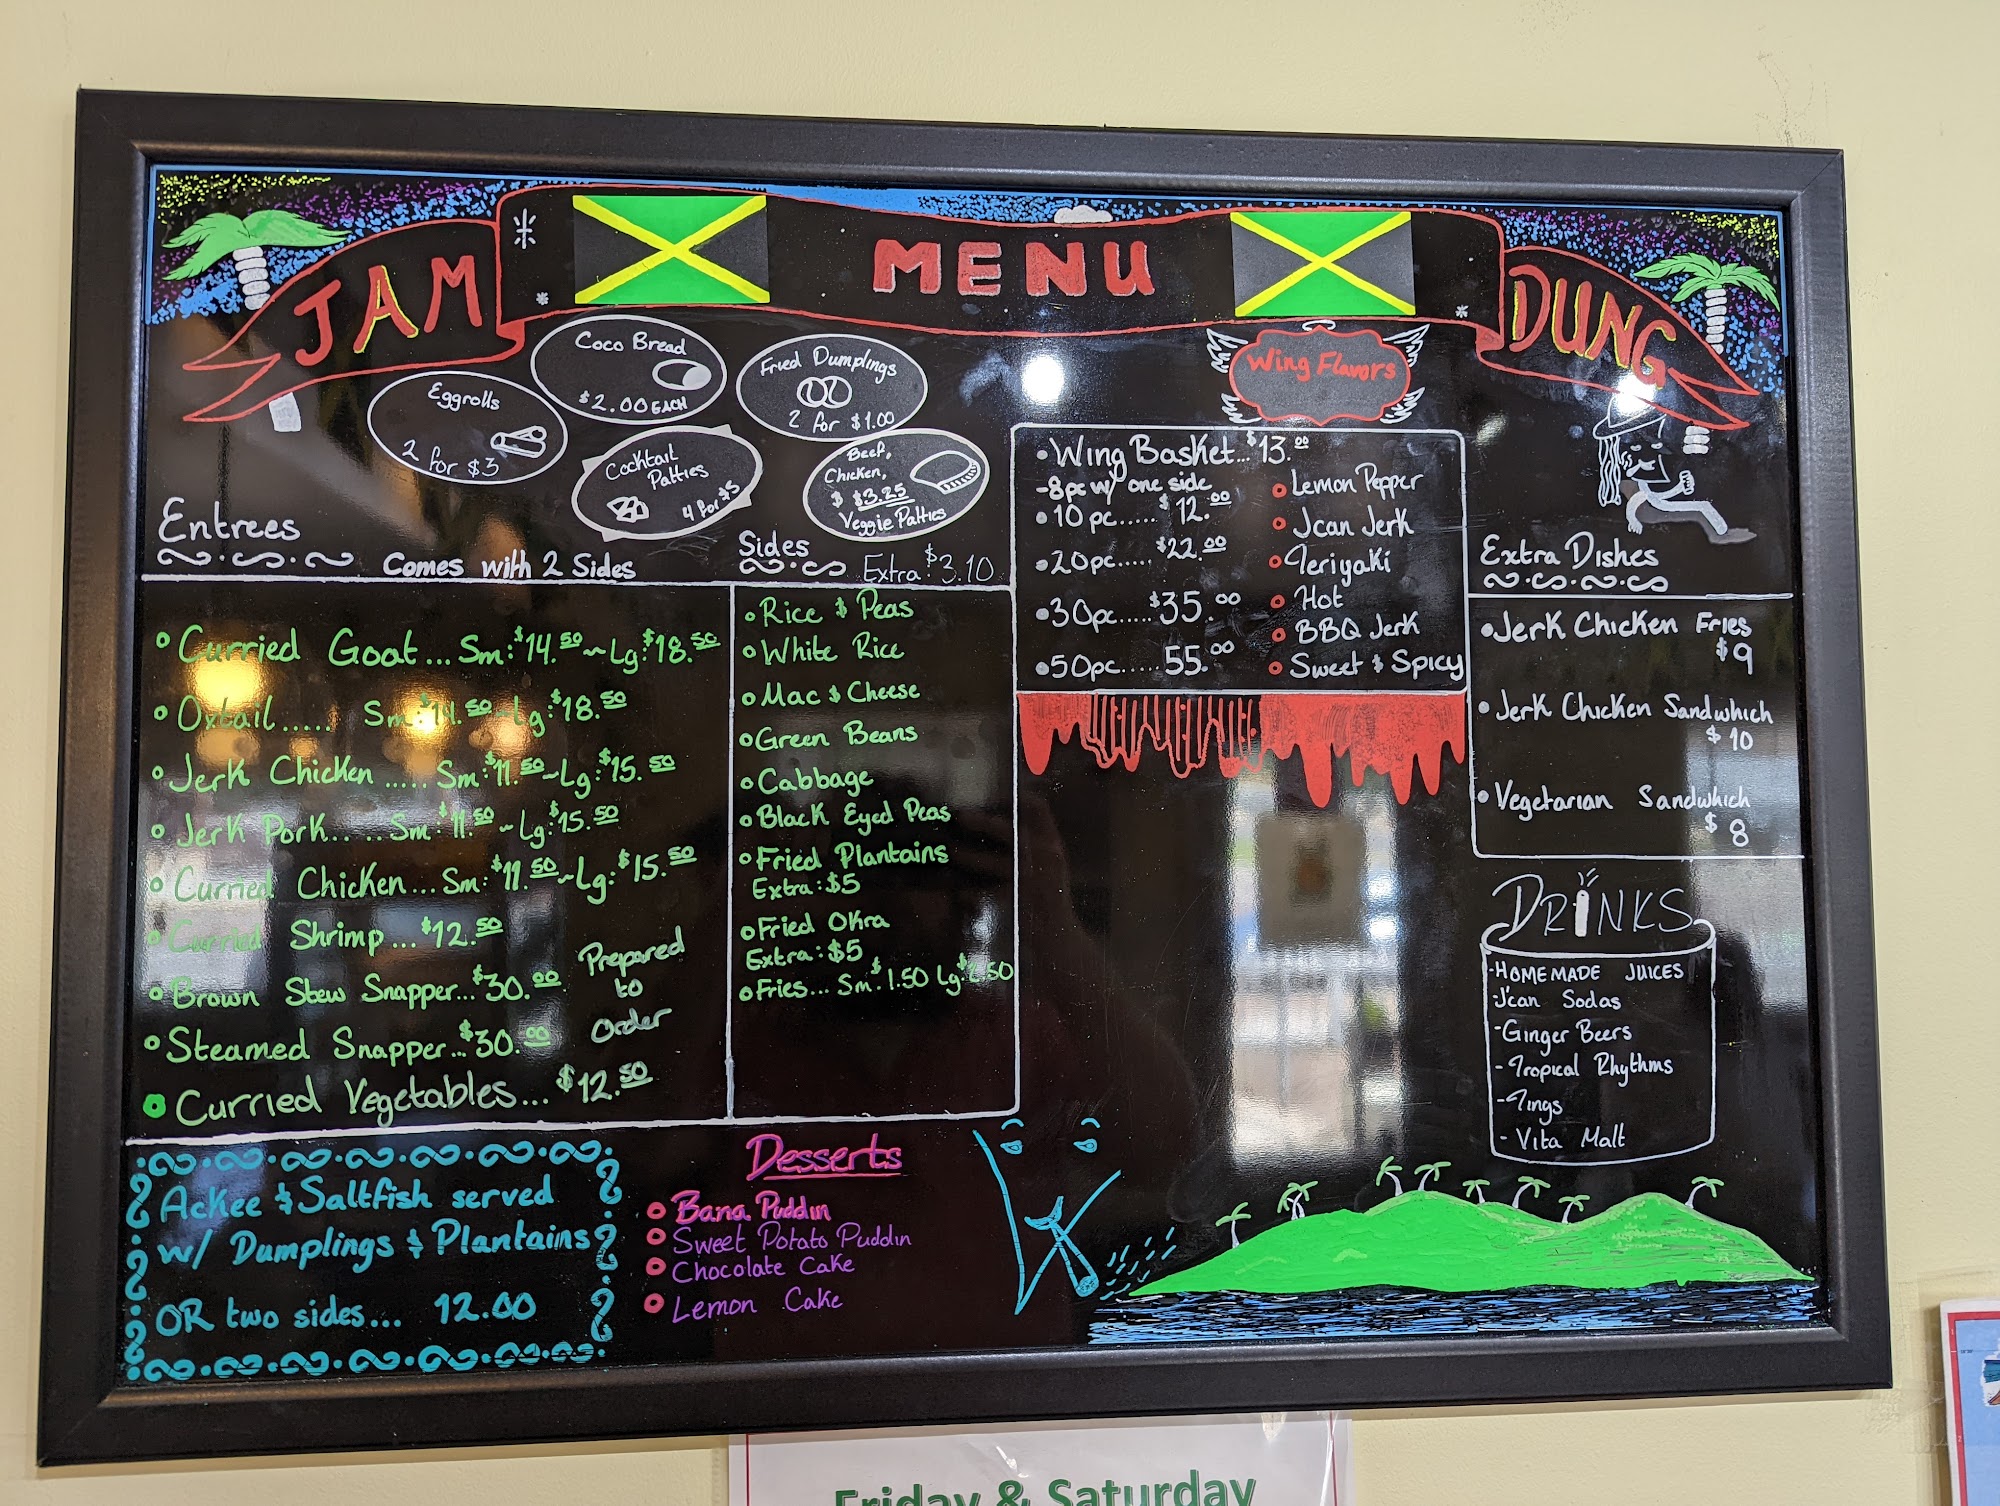 JAM MENU DUNG
Eggrolls
2 for $3
Coco Bread
$2.00 EACH
Cocktail
Patties
4 for $5
Fried Dumplings
2 for $1.00
Beef,
Chicken,
$ $3.25
Veggie Patties
Entrees
Comes with 2 Sides
Curried Goat... Sm:$14.50 ~ Lg:$18.50
Oxtail..... Sm:$14.50 ~ Lg:$18.50
Jerk Chicken ..... Sm:$11.50 ~ Lg:$15.50
Jerk Pork..... Sm:$11.50 ~ Lg:$15.50
Curried Chicken... Sm:$11.50 ~ Lg:$15.50
Curried Shrimp... $12.50
Brown Stew Snapper... $30.00
Steamed Snapper... $30.00
Prepared
to
Order
Curried Vegetables... $12.50
Sides
Extra: $3.10
Rice & Peas
White Rice
Mac & Cheese
Green Beans
Cabbage
Black Eyed Peas
Fried Plantains
Extra: $5
Fried Okra
Extra: $5
Fries... Sm:$1.50 Lg:$2.50
Wing Flavors
Wing Basket... $13.00
-8pc w/ one side
10 pc..... $12.00
20pc..... $22.00
30pc..... $35.00
50pc...... 55.00
Lemon Pepper
Jcan Jerk
Teriyaki
Hot
BBQ Jerk
Sweet & Spicy
Extra Dishes
Jerk Chicken Fries
$9
Jerk Chicken Sandwhich
$10
Vegetarian Sandwhich
$8
DRINKS
-HOMEMADE JUICES
-J'can Sodas
-Ginger Beers
-Tropical Rhythms
-Tings
-Vita Malt
Ackee & Saltfish served
w/ Dumplings & Plantains
OR two sides... 12.00
Desserts
Bana Puddin
Sweet Potato Puddin
Chocolate Cake
Lemon Cake
Friday & Saturday